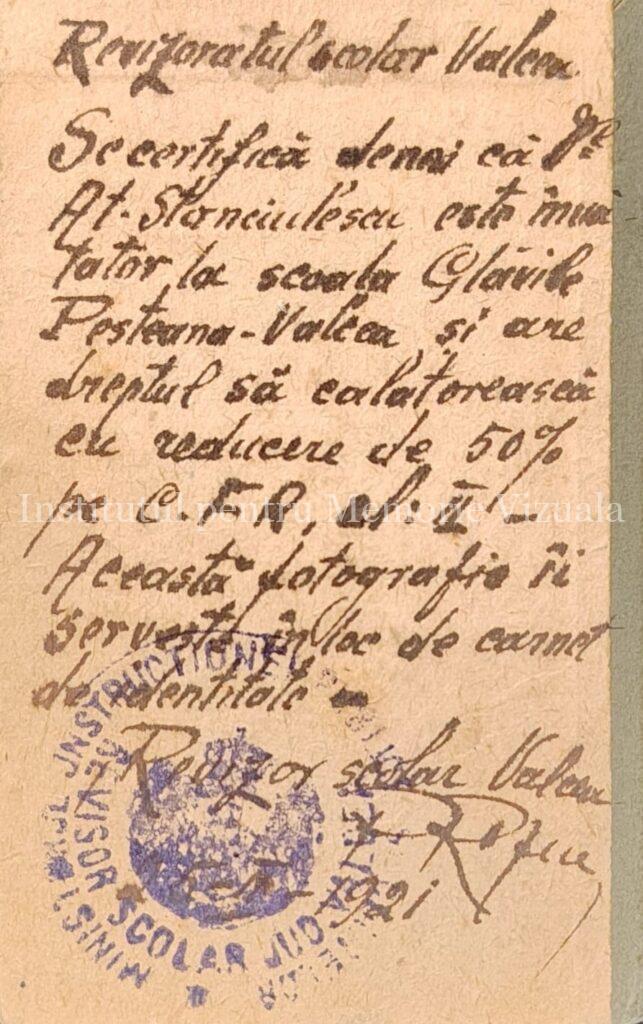 Revizoratul scolar Valcea
Se certifică de noi că
At. Stanciulescu este înva
tator la scoala Glăvile
Pesteana-Valcea, și are
dreptul să calatorească
cu reducere de 50%
pe C.F.R. cl. II -
Această fotografie îi
serveste în loc de carnet
de identitate -
Revizor scolar Valcea
1921
MINISTERUL INSTRUCTIUNEI
REVISOR SCOLAR JUD
Institutul pentru Memorie Vizuala